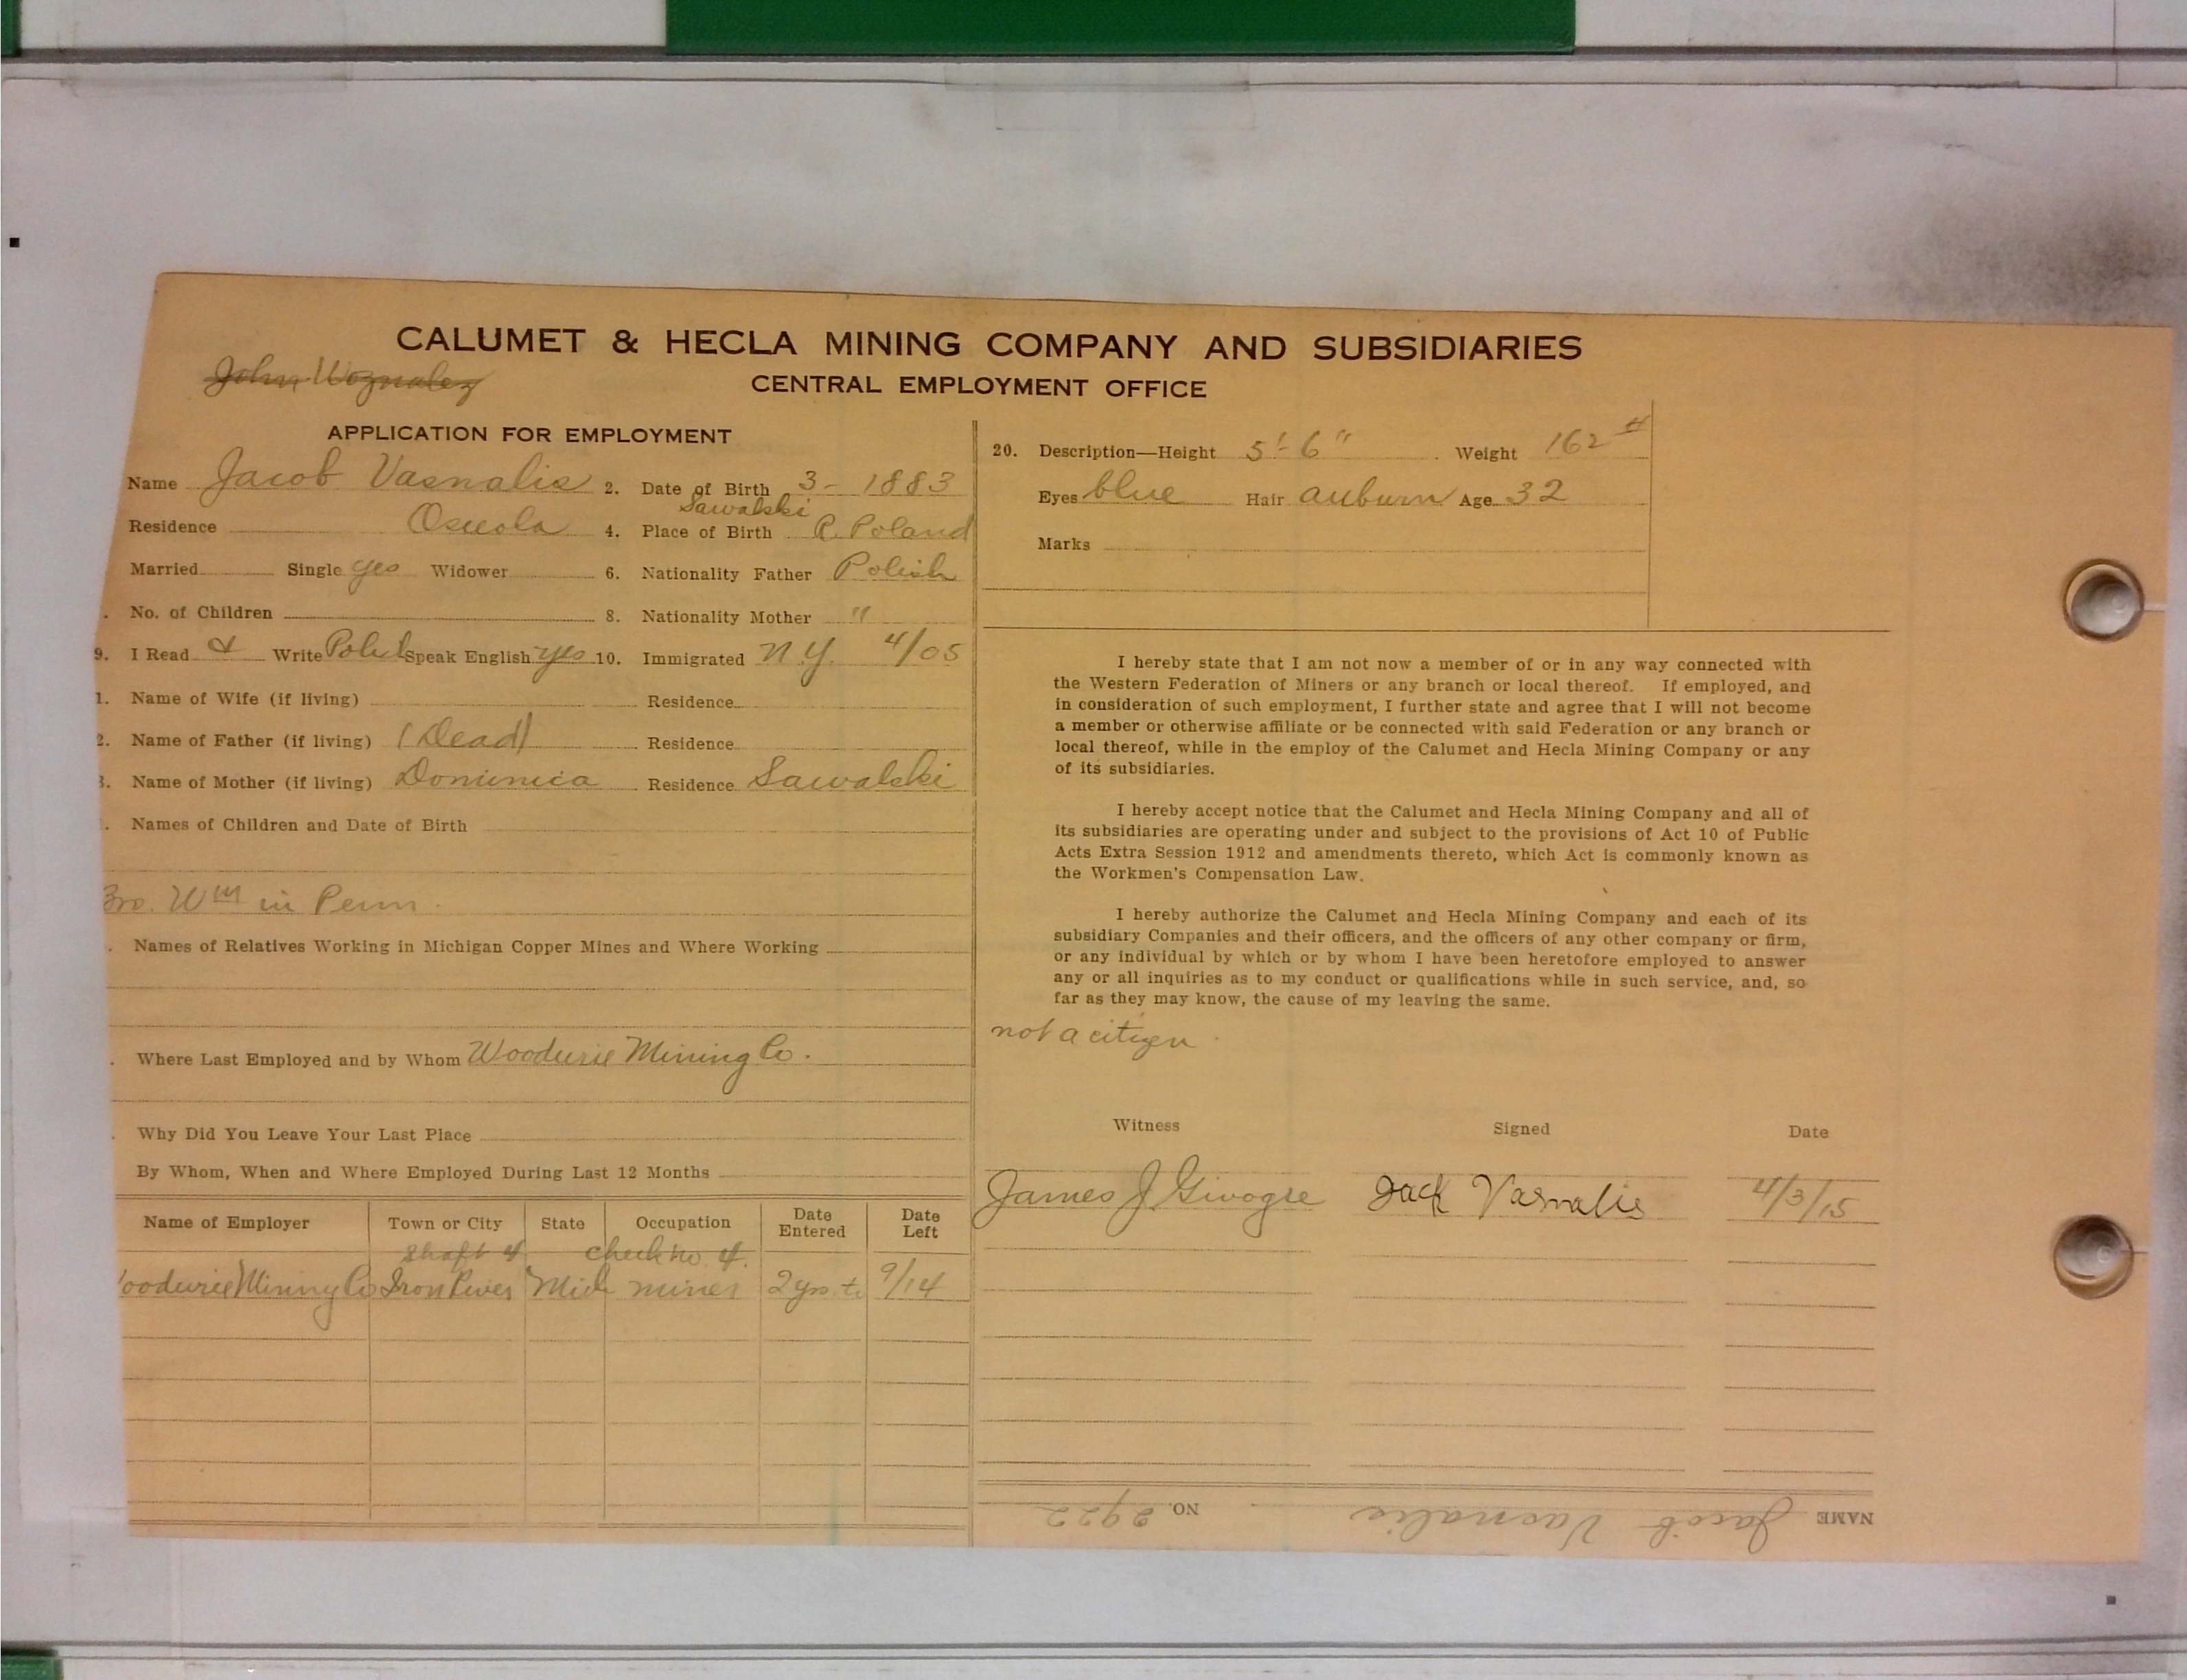 CALUMET & HECLA MINING COMPANY AND SUBSIDIARIES
John Woznalez
CENTRAL EMPLOYMENT OFFICE
APPLICATION FOR EMPLOYMENT
Name Jacob Vasnalis 2. Date of Birth 3- 1883
Sawalski
Residence Osceola 4. Place of Birth R. Poland
Married Single yes Widower 6. Nationality Father Polish
. No. of Children 8. Nationality Mother "
9. I Read & Write Polish Speak English yes 10. Immigrated N.Y. 4/05
1. Name of Wife (if living) Residence
2. Name of Father (if living) (Dead) Residence
3. Name of Mother (if living) Dominica Residence Sawalski
. Names of Children and Date of Birth
Bro. Wm in Penn.
. Names of Relatives Working in Michigan Copper Mines and Where Working
. Where Last Employed and by Whom Mining Co.
. Why Did You Leave Your Last Place
By Whom, When and Where Employed During Last 12 Months
Name of Employer Town or City State Occupation Date Entered Date Left
Shaft 4 check no. 4.
Mining Co Iron River Mich miner 2 yrs to 9/14
20. Description—Height 5'-6" Weight 162#
Eyes blue Hair auburn Age 32
Marks
I hereby state that I am not now a member of or in any way connected with
the Western Federation of Miners or any branch or local thereof. If employed, and
in consideration of such employment, I further state and agree that I will not become
a member or otherwise affiliate or be connected with said Federation or any branch or
local thereof, while in the employ of the Calumet and Hecla Mining Company or any
of its subsidiaries.
I hereby accept notice that the Calumet and Hecla Mining Company and all of
its subsidiaries are operating under and subject to the provisions of Act 10 of Public
Acts Extra Session 1912 and amendments thereto, which Act is commonly known as
the Workmen's Compensation Law.
I hereby authorize the Calumet and Hecla Mining Company and each of its
subsidiary Companies and their officers, and the officers of any other company or firm,
or any individual by which or by whom I have been heretofore employed to answer
any or all inquiries as to my conduct or qualifications while in such service, and, so
far as they may know, the cause of my leaving the same.
not a citizen
Witness Signed Date
James J Jack Vasnalis 4/3/15
NAME Jacob Vasnalis NO. 2922